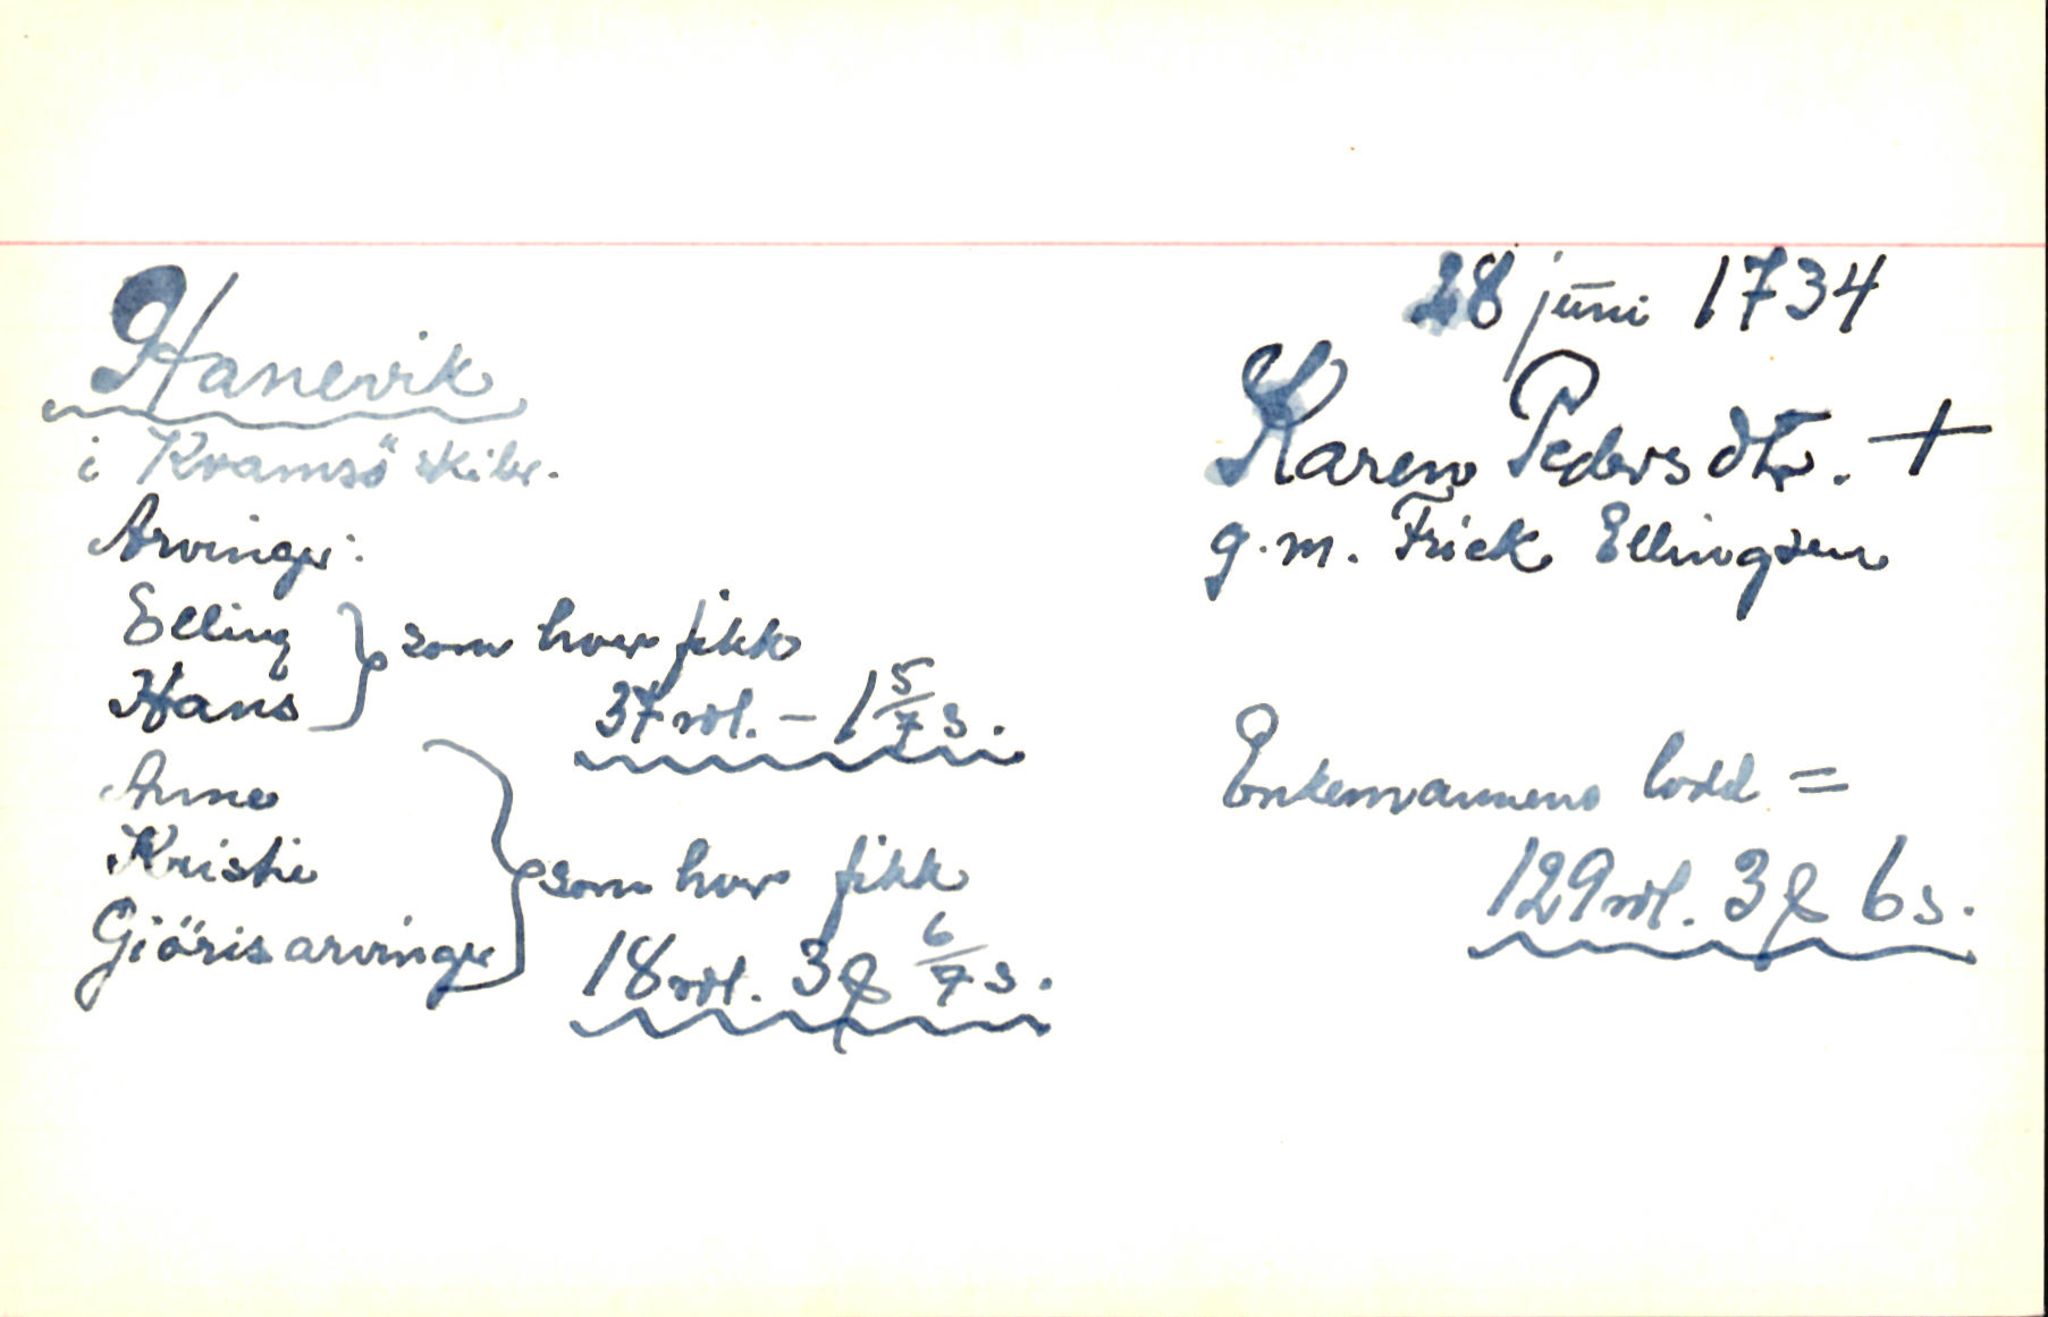 28 juni 1734
Hanevik
i Kvamsö skibr.
Karen Pedersdtr. +
g.m. Frick Ellingsen
Arvinger:
Elling
Hans
som hver fikk
37 rdl. - 1 5/7 s.
Anne
Kristie
Giöris arvinger
som hver fikk
18 rdl. 3 ꝑ 6/7 s.
Enkemannens lodd =
129 rdl. 3 ꝑ 6 s.